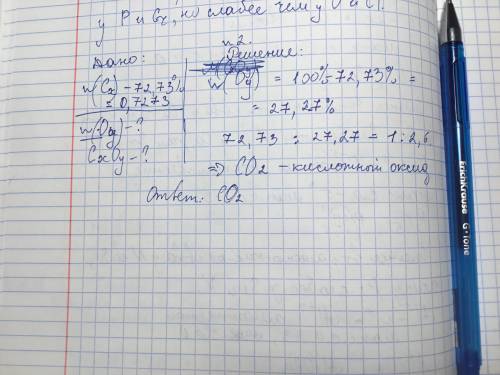 у P и Cr, но слабее чем у O и Cl.
n 2.
Дано:
Решение:
w(Cx) - 72,73%
= 0,7273
w(Oy) - ?
CxOy - ?
w(Oy) = 100% - 72,73% =
= 27,27%
72,73 : 27,27 = 1 : 2,6
=> CO2 - кислотный оксид
Ответ: CO2
ErichKrause
G-Tone